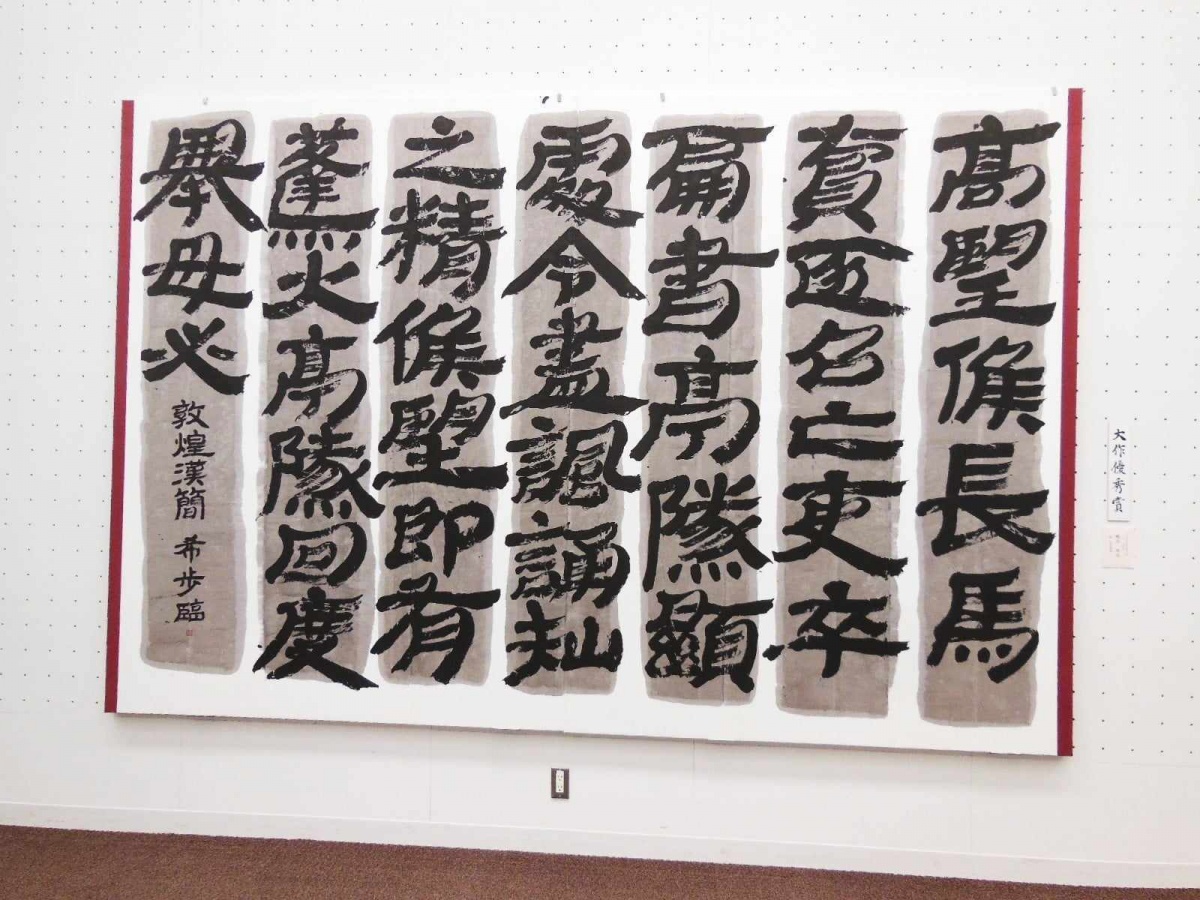 高望候長馬
亡吏卒
扁書亭隧顯
處令盡諷誦知
之精候望即有
蓬火亭隧回度
舉毋必
敦煌漢簡 希歩臨
大作優秀賞